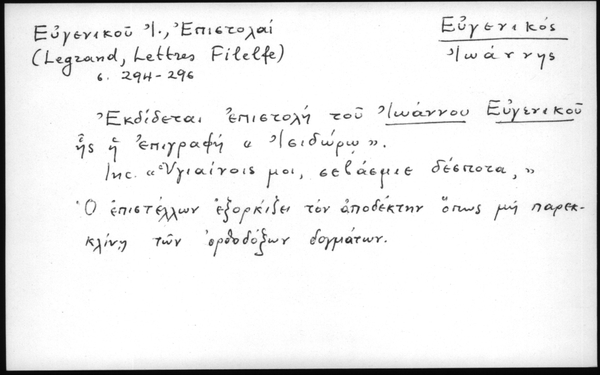 Εὐγενικοῦ Ἰ., Ἐπιστολαί
(Legrand, Lettres Filelfe)
σ. 294-296
Εὐγενικός
Ἰωάννης
Ἐκδίδεται ἐπιστολή τοῦ Ἰωάννου Εὐγενικοῦ
ἧς ἡ ἐπιγραφή « Ἰσιδώρῳ ».
Inc. «Ὑγιαίνοις μοι, σεβάσμιε δέσποτα, »
Ὁ ἐπιστέλλων ἐξορκίζει τόν ἀποδέκτην ὅπως μή παρεκ-
κλίνῃ τῶν ὀρθοδόξων δογμάτων.